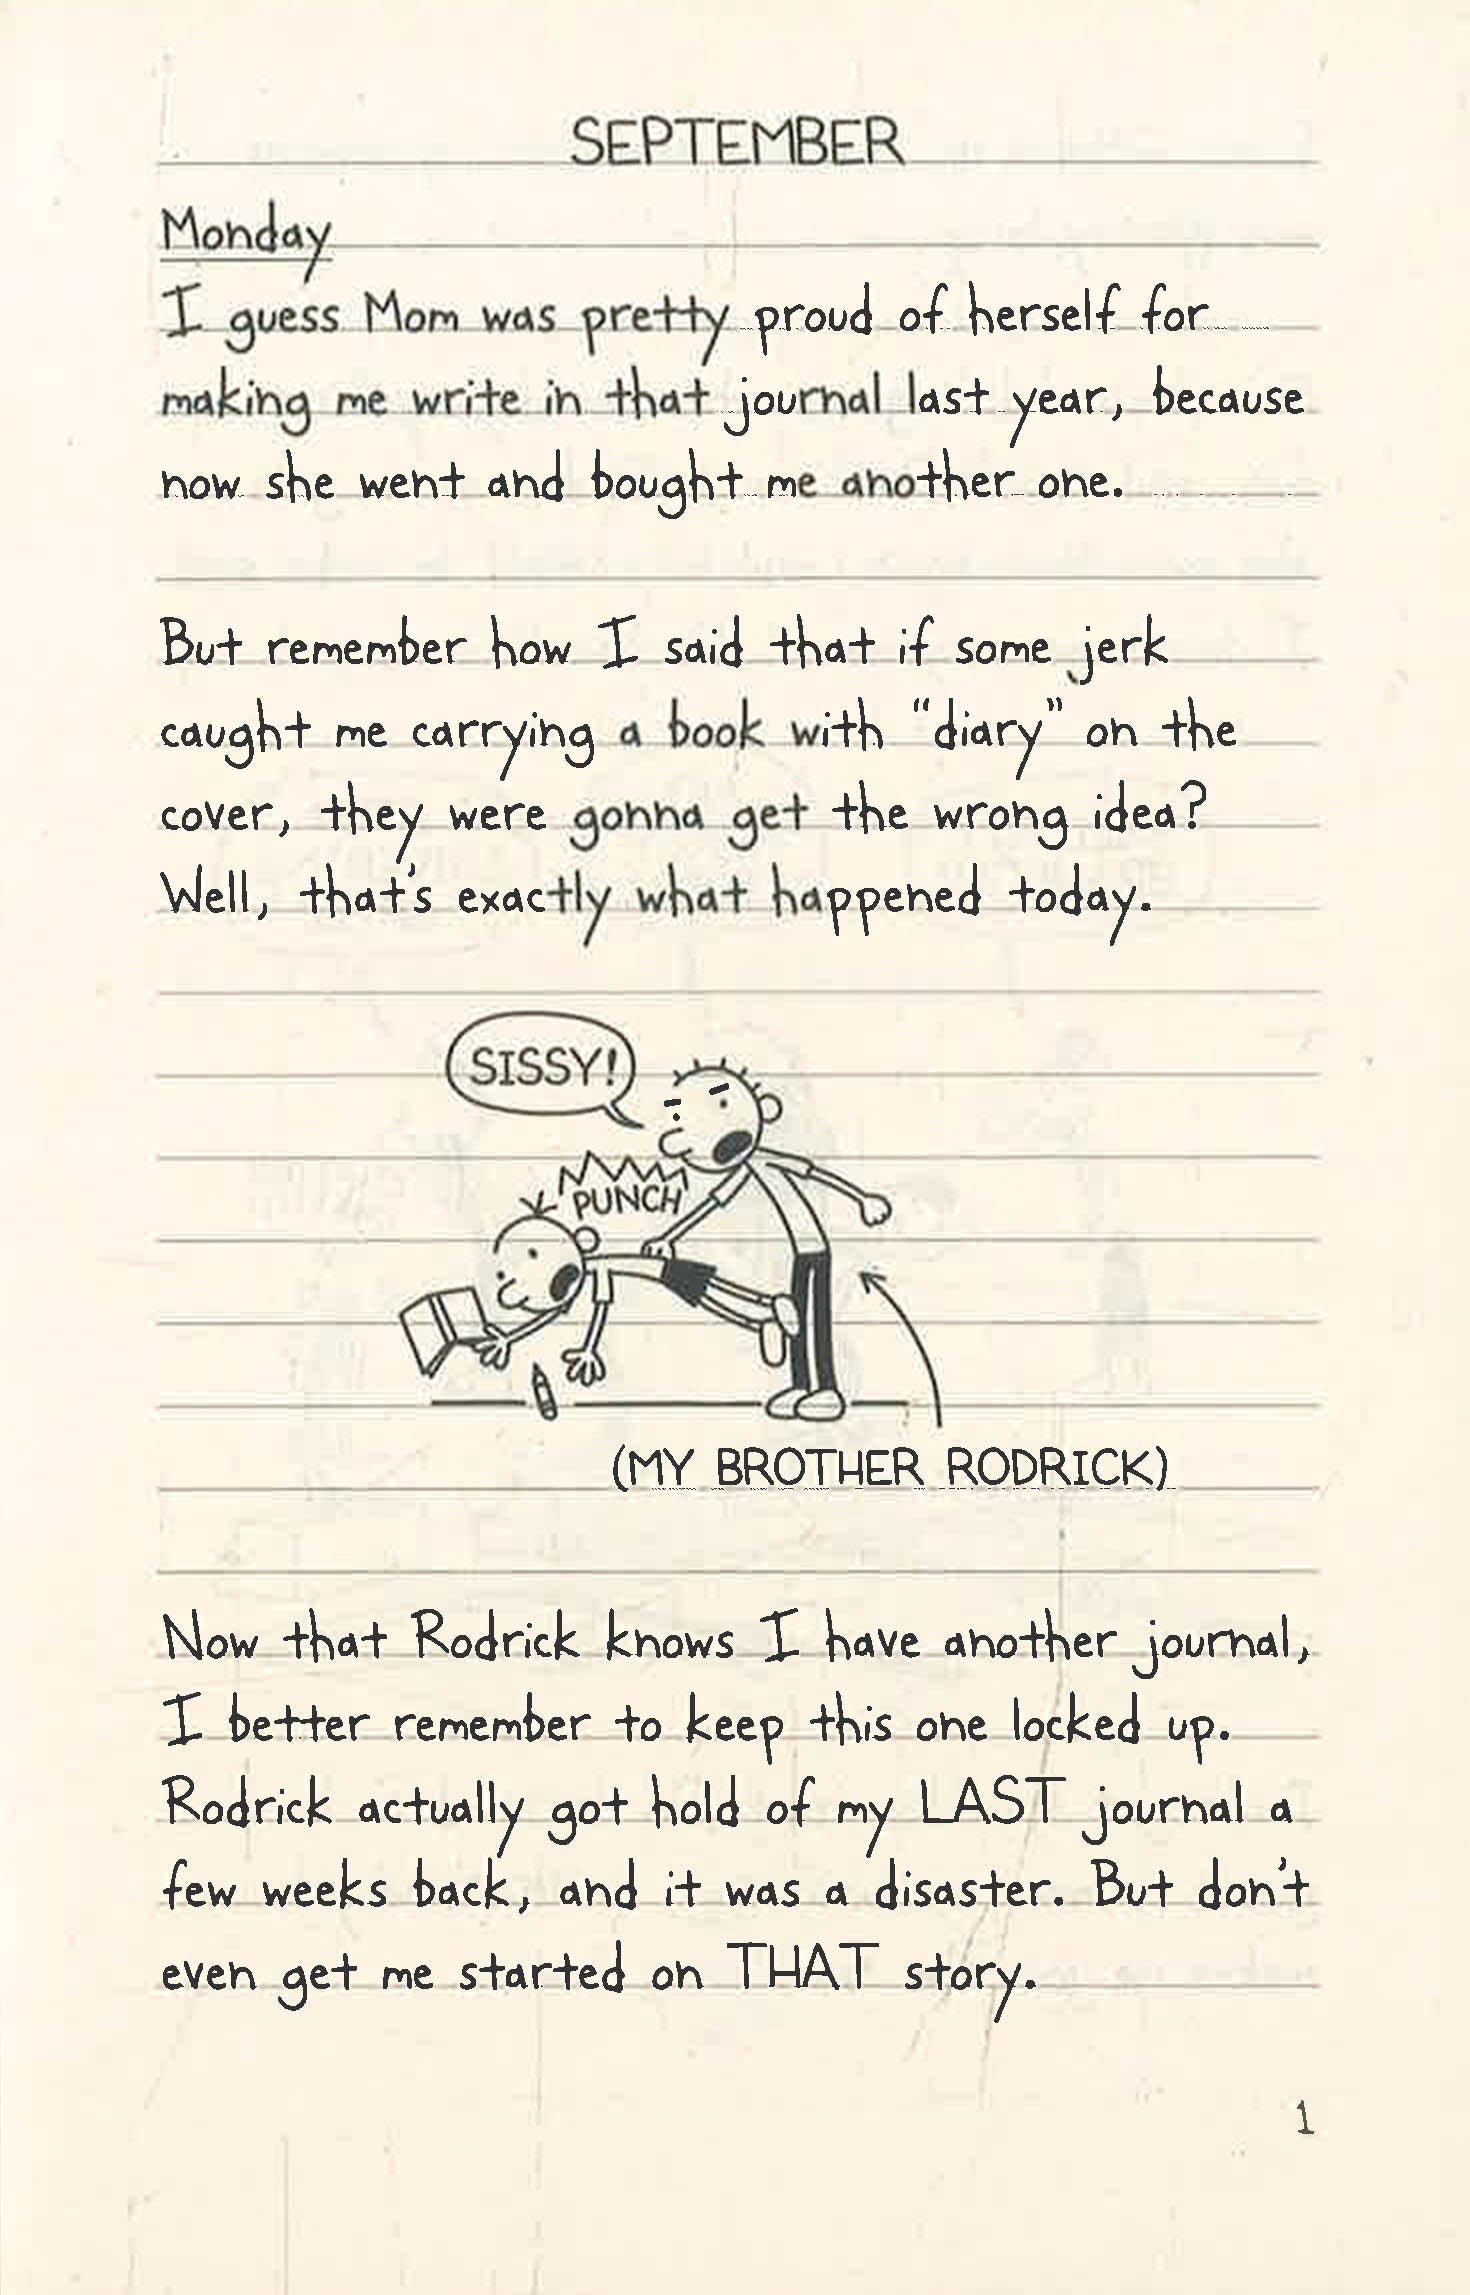 SEPTEMBER
Monday
I guess Mom was pretty proud of herself for
making me write in that journal last year, because
now she went and bought me another one.
But remember how I said that if some jerk
caught me carrying a book with “diary” on the
cover, they were gonna get the wrong idea?
Well, that's exactly what happened today.
SISSY!
PUNCH
(MY BROTHER RODRICK)
Now that Rodrick knows I have another journal,
I better remember to keep this one locked up.
Rodrick actually got hold of my LAST journal a
few weeks back, and it was a disaster. But don't
even get me started on THAT story.
1